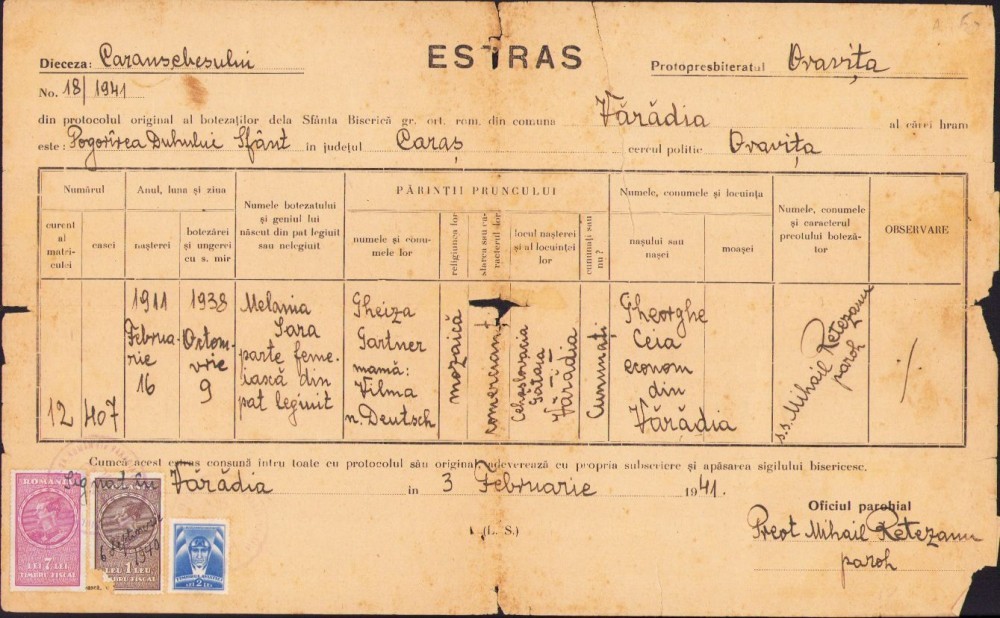 Dieceza: Caransebesului
ESTRAS
Protopresbiteratul Oravița
No. 18/1941
din protocolul original al botezaților dela Sfânta Biserică gr. ort. rom. din comuna Vărădia al cărei hram
este: Pogorîrea Duhului Sfânt în județul Caraș cercul politic Oravița
Numărul
curent al matriculei
casei
Anul, luna și ziua
nașterei
botezărei și ungerei cu s. mir
Numele botezatului și geniul lui născut din pat legiuit sau nelegiuit
PĂRINȚII PRUNCULUI
numele și conumele lor
religiunea lor
starea sau caracterul lor
locul nașterei și al locuinței lor
cununați sau nu?
Numele, conumele și locuința
nașului sau nașei
moașei
Numele, conumele și caracterul preotului botezător
OBSERVARE
12
407
1911 Februarie 16
1938 Octomvrie 9
Melania Sara parte femeiască din pat legiuit
Gheiza Gartner mamă: Vilma n. Deutsch
mozaică
comerciant
Cehoslovacia Gătaia Vărădia
Cununați
Gheorghe Ceia econom din Vărădia
s.s. Mihail Retezanu paroh
Cumcă acest estras consună întru toate cu protocolul său original, adeverează cu propria subscriere și apăsarea sigilului bisericesc.
Signat în Vărădia in 3 Februarie 1941.
Oficiul parohial
(L. S.)
Preot Mihail Retezanu
paroh
ROMANIA
LEI 7 LEI
TIMBRU FISCAL
LEU 1 LEU
TIMBRU FISCAL
LEI 2 LEI